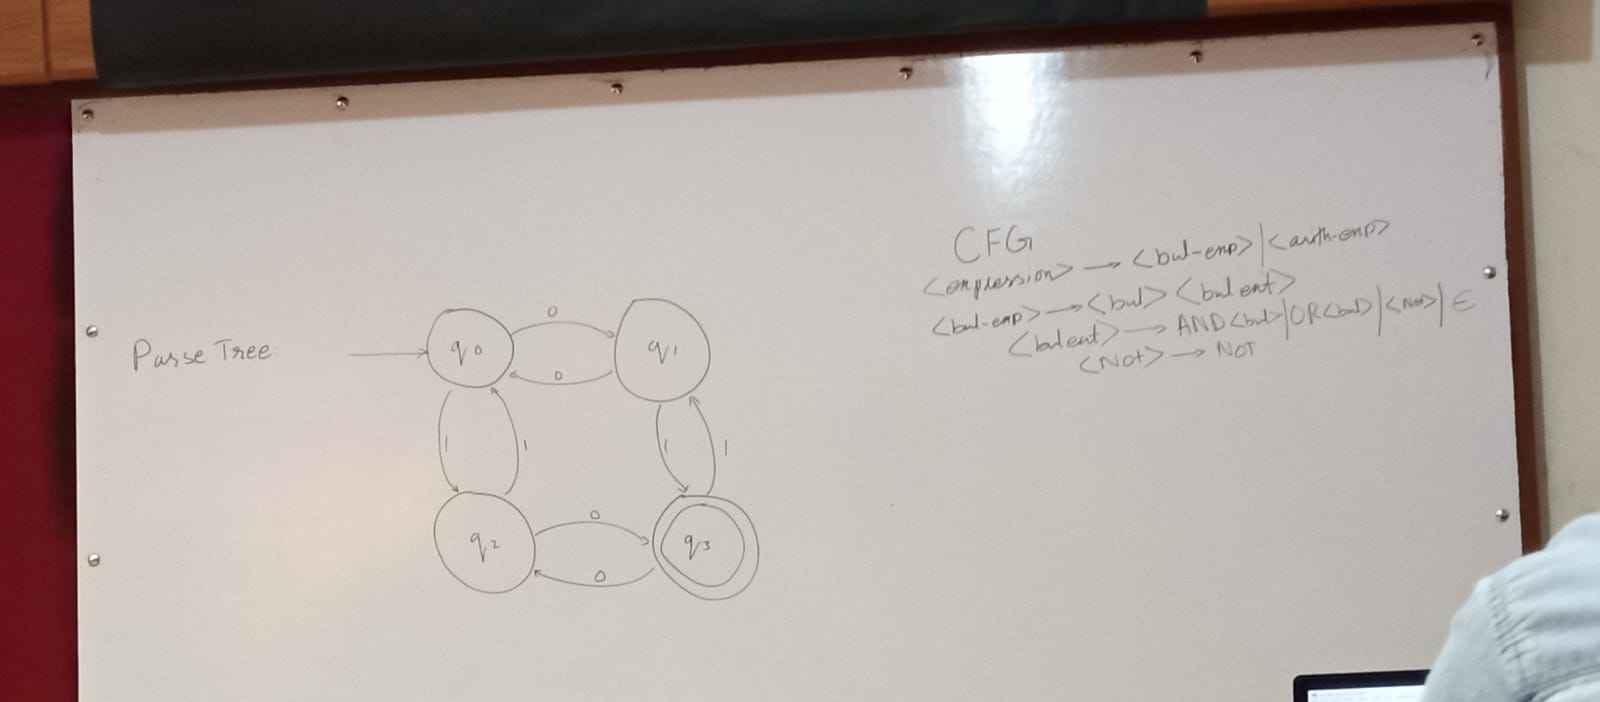 Parse Tree
0
q0
q1
0
1
1
1
1
0
q2
q3
0
CFG
<expression> → <bul-exp> | <arith-exp>
<bul-exp> → <bul> <bulent>
<bulent> → AND <bul> | OR <bul> | <Not> | ∈
<Not> → NOT